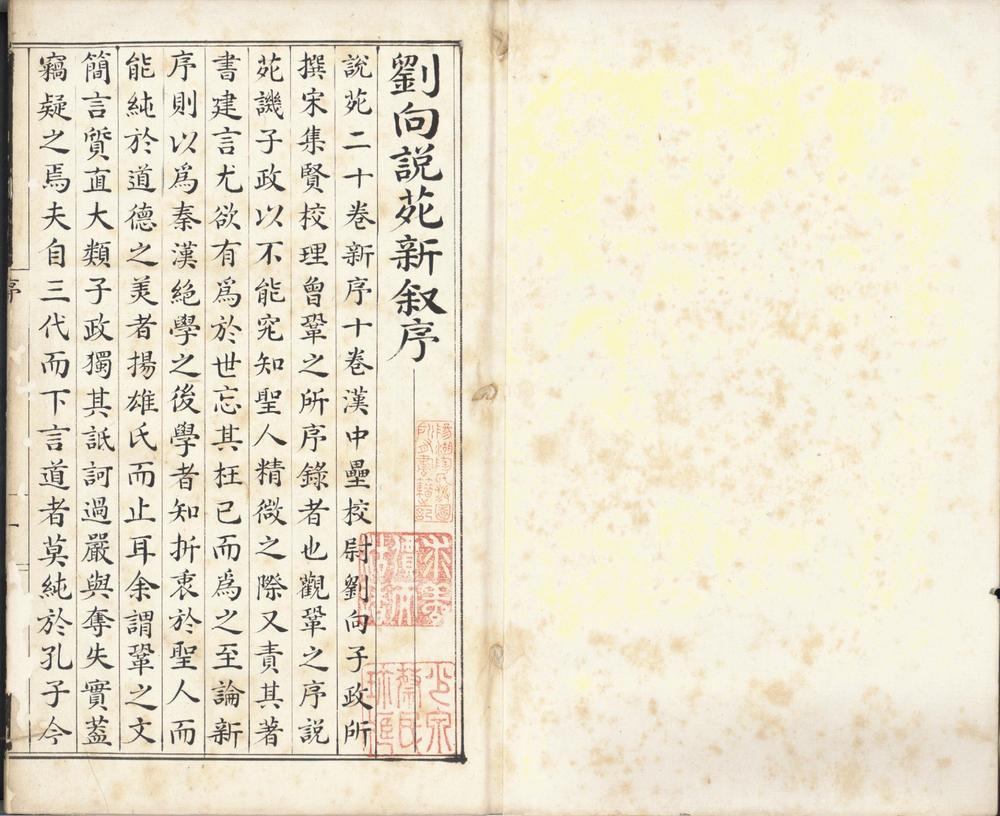 劉向說苑新叙序
說苑二十卷新序十卷漢中壘校尉劉向子政所
撰宋集賢校理曾鞏之所序錄者也觀鞏之序說
苑譏子政以不能究知聖人精微之際又責其著
書建言尤欲有爲於世忘其枉已而爲之至論新
序則以爲秦漢絶學之後學者知折衷於聖人而
能純於道德之美者揚雄氏而止耳余謂鞏之文
簡言質直大類子政獨其詆訶過嚴與奪失實蓋
竊疑之焉夫自三代而下言道者莫純於孔子今
序
一